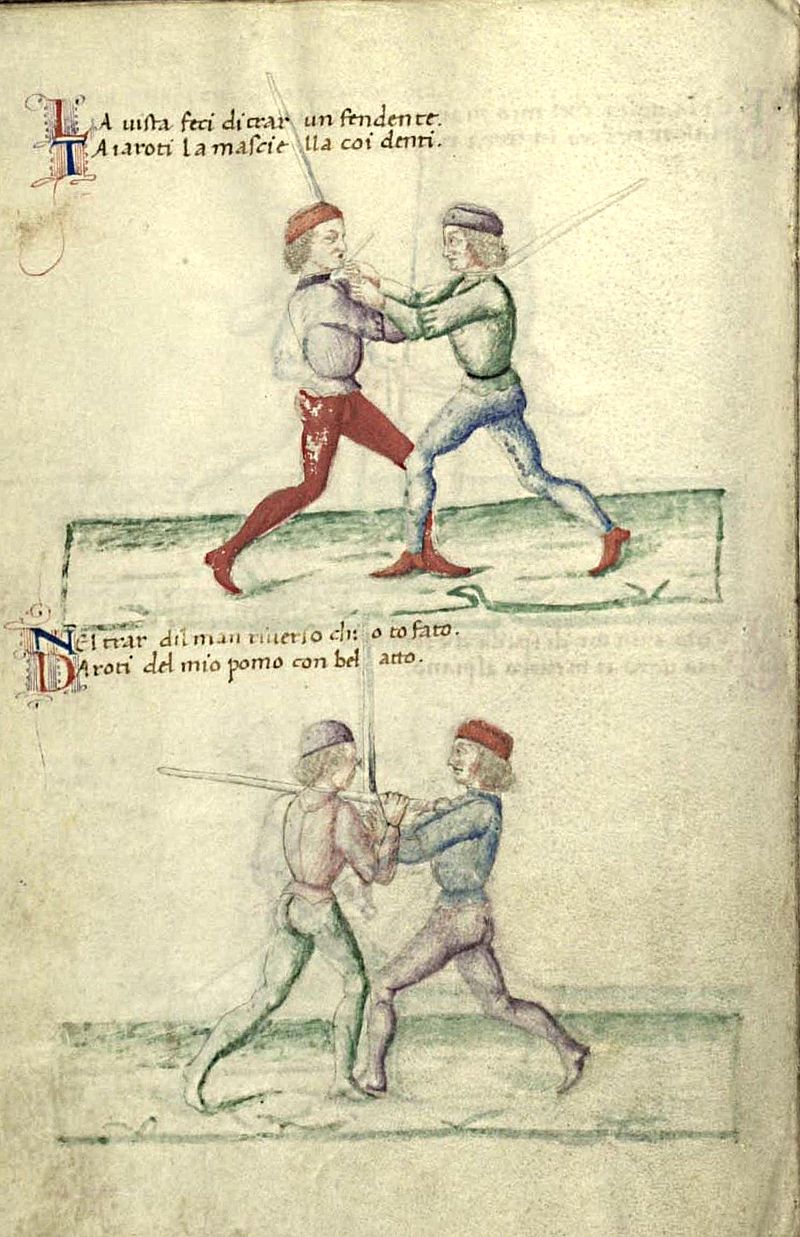 LA uista feci di trar un fendente.
TAiaroti la mascie lla coi denti.
NEl trar dil man riuerso ch io to fato.
DAroti del mio pomo con bel atto.